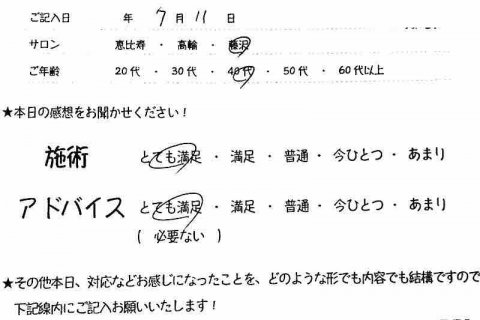 ご記入日 年 7月 11 日
サロン 恵比寿 ・ 高輪 ・ 藤沢
ご年齢 20代 ・ 30代 ・ 40代 ・ 50代 ・ 60代以上
★本日の感想をお聞かせください！
施術 とても満足 ・ 満足 ・ 普通 ・ 今ひとつ ・ あまり
アドバイス とても満足 ・ 満足 ・ 普通 ・ 今ひとつ ・ あまり
( 必要ない )
★その他本日、対応などお感じになったことを、どのような形でも内容でも結構ですので
下記線内にご記入お願いいたします！